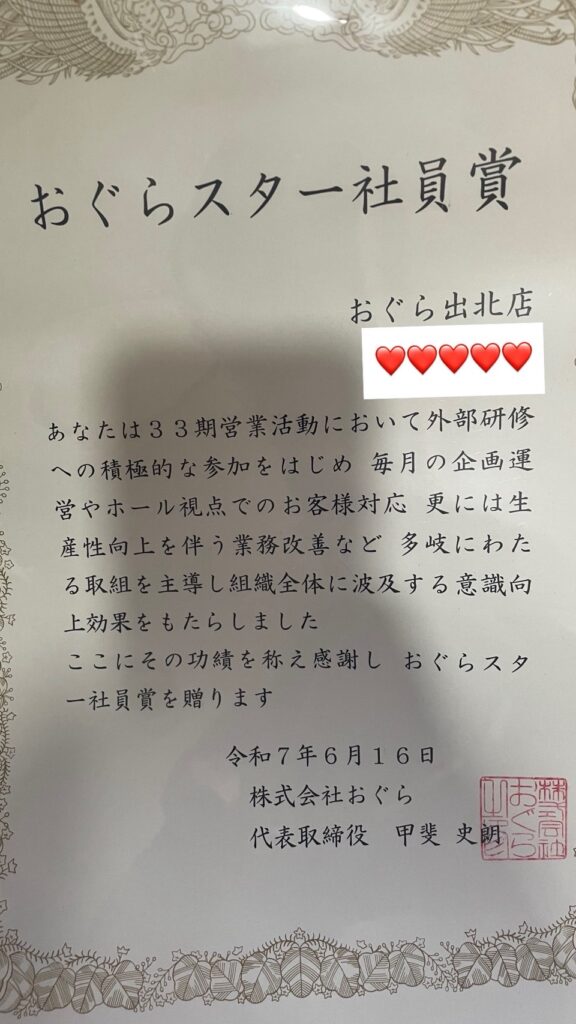 おぐらスター社員賞
おぐら出北店
❤️❤️❤️❤️❤️
あなたは３３期営業活動において外部研修
への積極的な参加をはじめ 毎月の企画運
営やホール視点でのお客様対応 更には生
産性向上を伴う業務改善など 多岐にわた
る取組を主導し組織全体に波及する意識向
上効果をもたらしました
ここにその功績を称え感謝し おぐらスタ
ー社員賞を贈ります
令和７年６月１６日
株式会社おぐら
代表取締役 甲斐 史朗
株式会社
おぐら